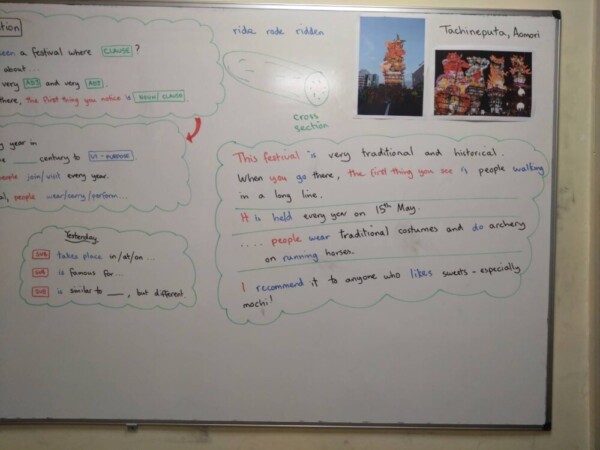 tion
een a festival where CLAUSE ?
about...
very ADJ and very ADJ.
there, the first thing you notice is NOUN/CLAUSE
y year in
century to VI - PURPOSE
people join/visit every year.
al, people wear/carry/perform...
Yesterday
SUB takes place in/at/on...
SUB is famous for...
SUB is similar to ___, but different.
ride rode ridden
cross
section
Tachineputa, Aomori
This festival is very traditional and historical.
When you go there, the first thing you see is people walking
in a long line.
It is held every year on 15th May.
.... people wear traditional costumes and do archery
on running horses.
I recommend it to anyone who likes sweets - especially
mochi!